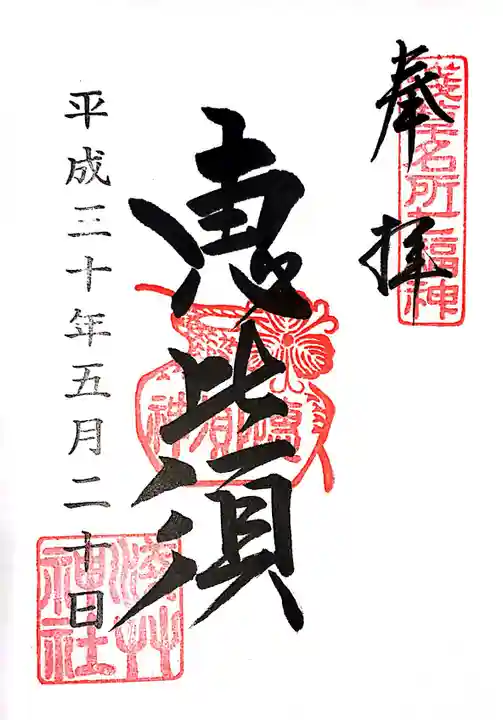 奉拝
浅草名所七福神
恵比須
平成三十年五月二十日
浅草神社